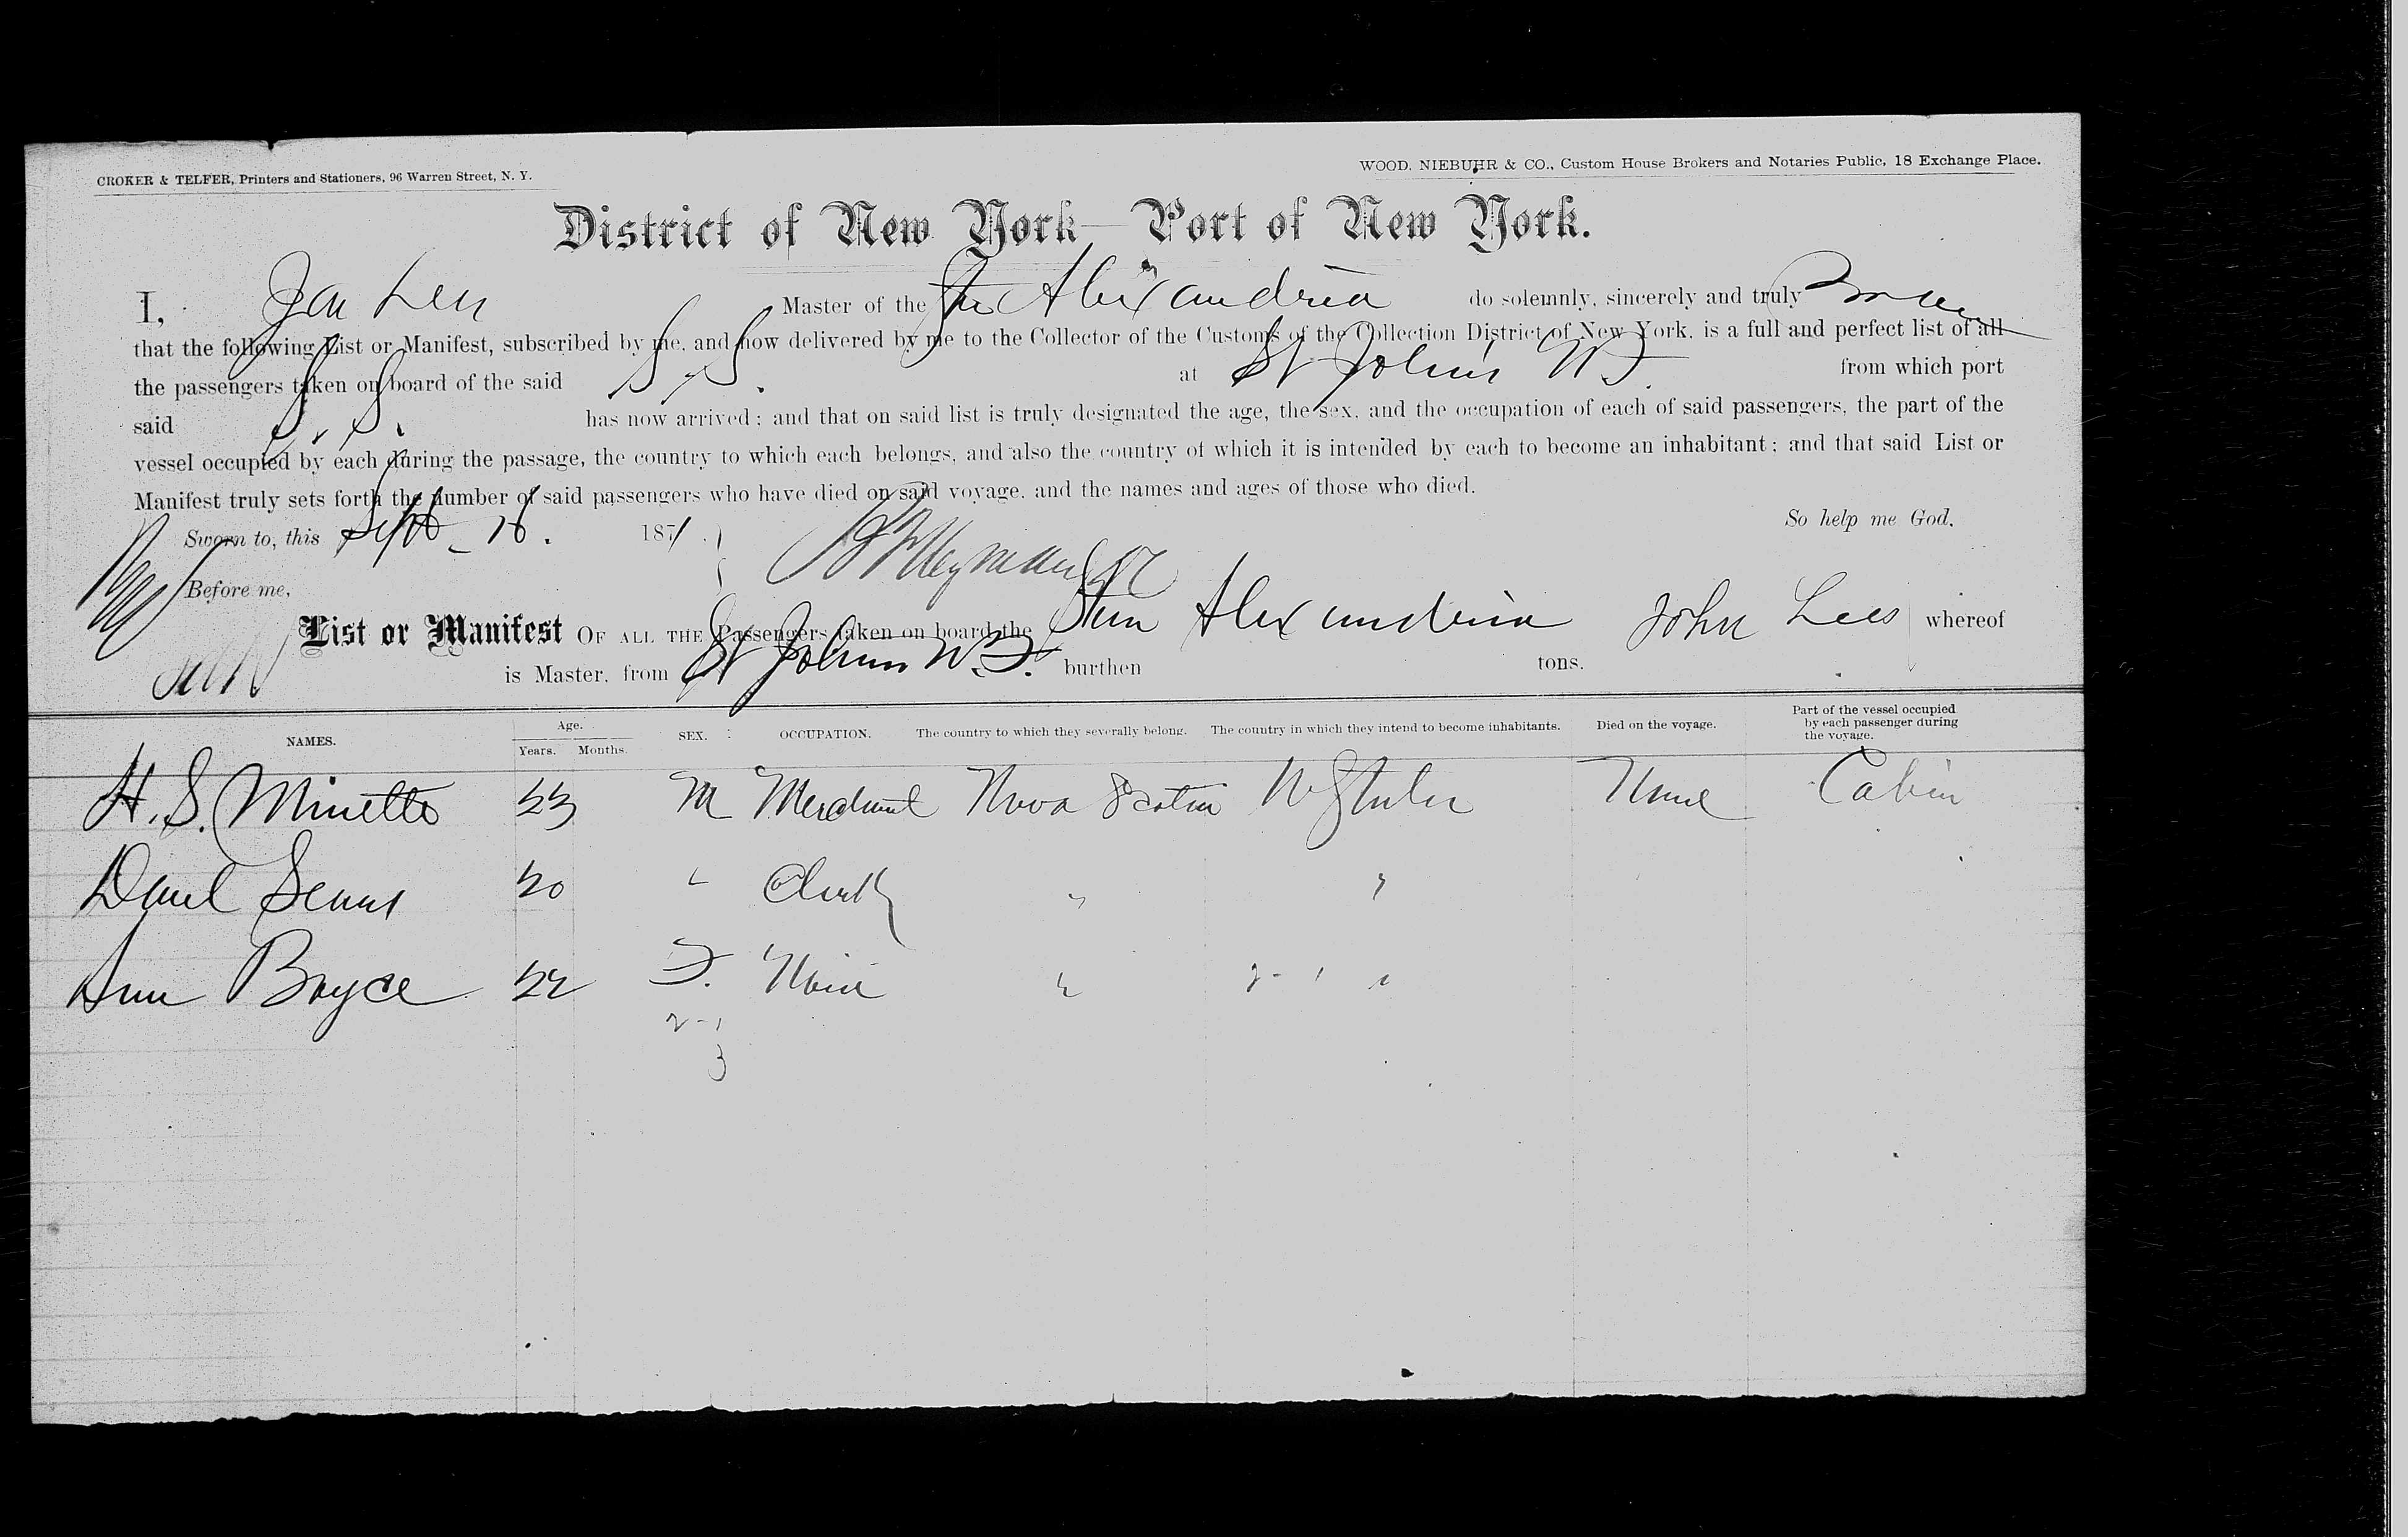 CROKER & TELFER, Printers and Stationers, 96 Warren Street, N. Y.
WOOD, NIEBUHR & CO., Custom House Brokers and Notaries Public, 18 Exchange Place.
District of New York—Port of New York.
I, Jon Lees Master of the Str Alexandria do solemnly, sincerely and truly Swear
that the following List or Manifest, subscribed by me, and now delivered by me to the Collector of the Customs of the Collection District of New York, is a full and perfect list of all
the passengers taken on board of the said S.S. at St Johns N F from which port
said S.S. has now arrived; and that on said list is truly designated the age, the sex, and the occupation of each of said passengers, the part of the
vessel occupied by each during the passage, the country to which each belongs, and also the country of which it is intended by each to become an inhabitant; and that said List or
Manifest truly sets forth the number of said passengers who have died on said voyage, and the names and ages of those who died.
So help me God.
Sworn to, this Sept 16. 1871.
Before me,
List or Manifest OF ALL THE Passengers taken on board the Stm Alexandria John Lees whereof
is Master, from St Johns N.F. burthen tons.
NAMES. Age. Years. Months. SEX. OCCUPATION. The country to which they severally belong. The country in which they intend to become inhabitants. Died on the voyage. Part of the vessel occupied by each passenger during the voyage.
H. S. Minetto 23 M Merchant Nova Scotia U States None Cabin
Danl 20 " Clerk " "
Ann Boyce 22 F. None " 2 - 1 "
2 - 1
3